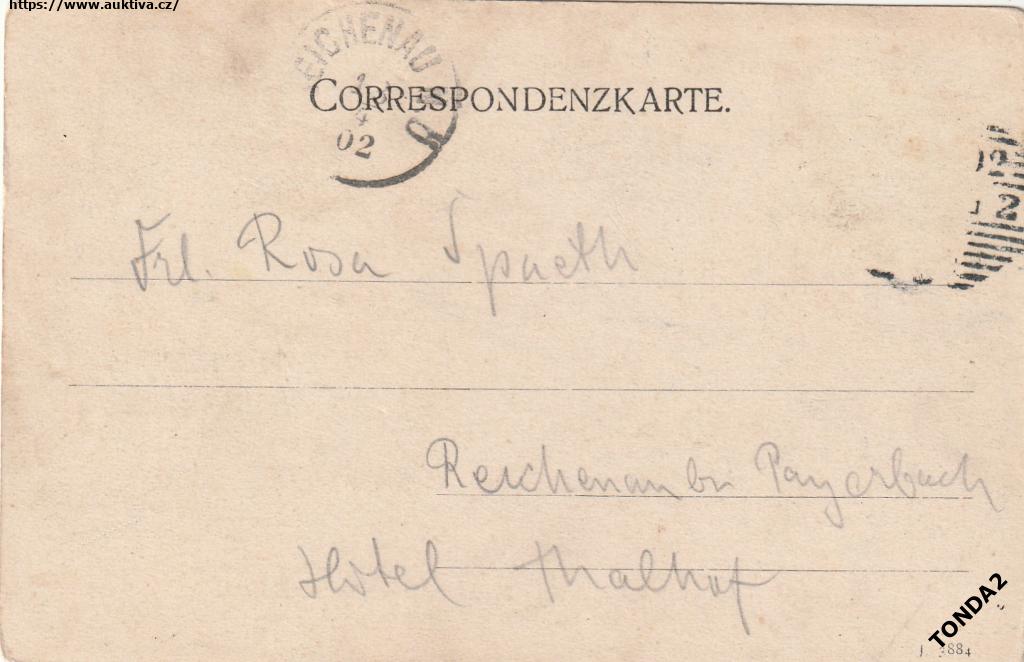 https://www.auktiva.cz/
EICHENAU
02
CORRESPONDENZKARTE.
2
Frl. Rosa Spaeth
Reichenau bei Payerbach
Hôtel Thalhof
TONDA2